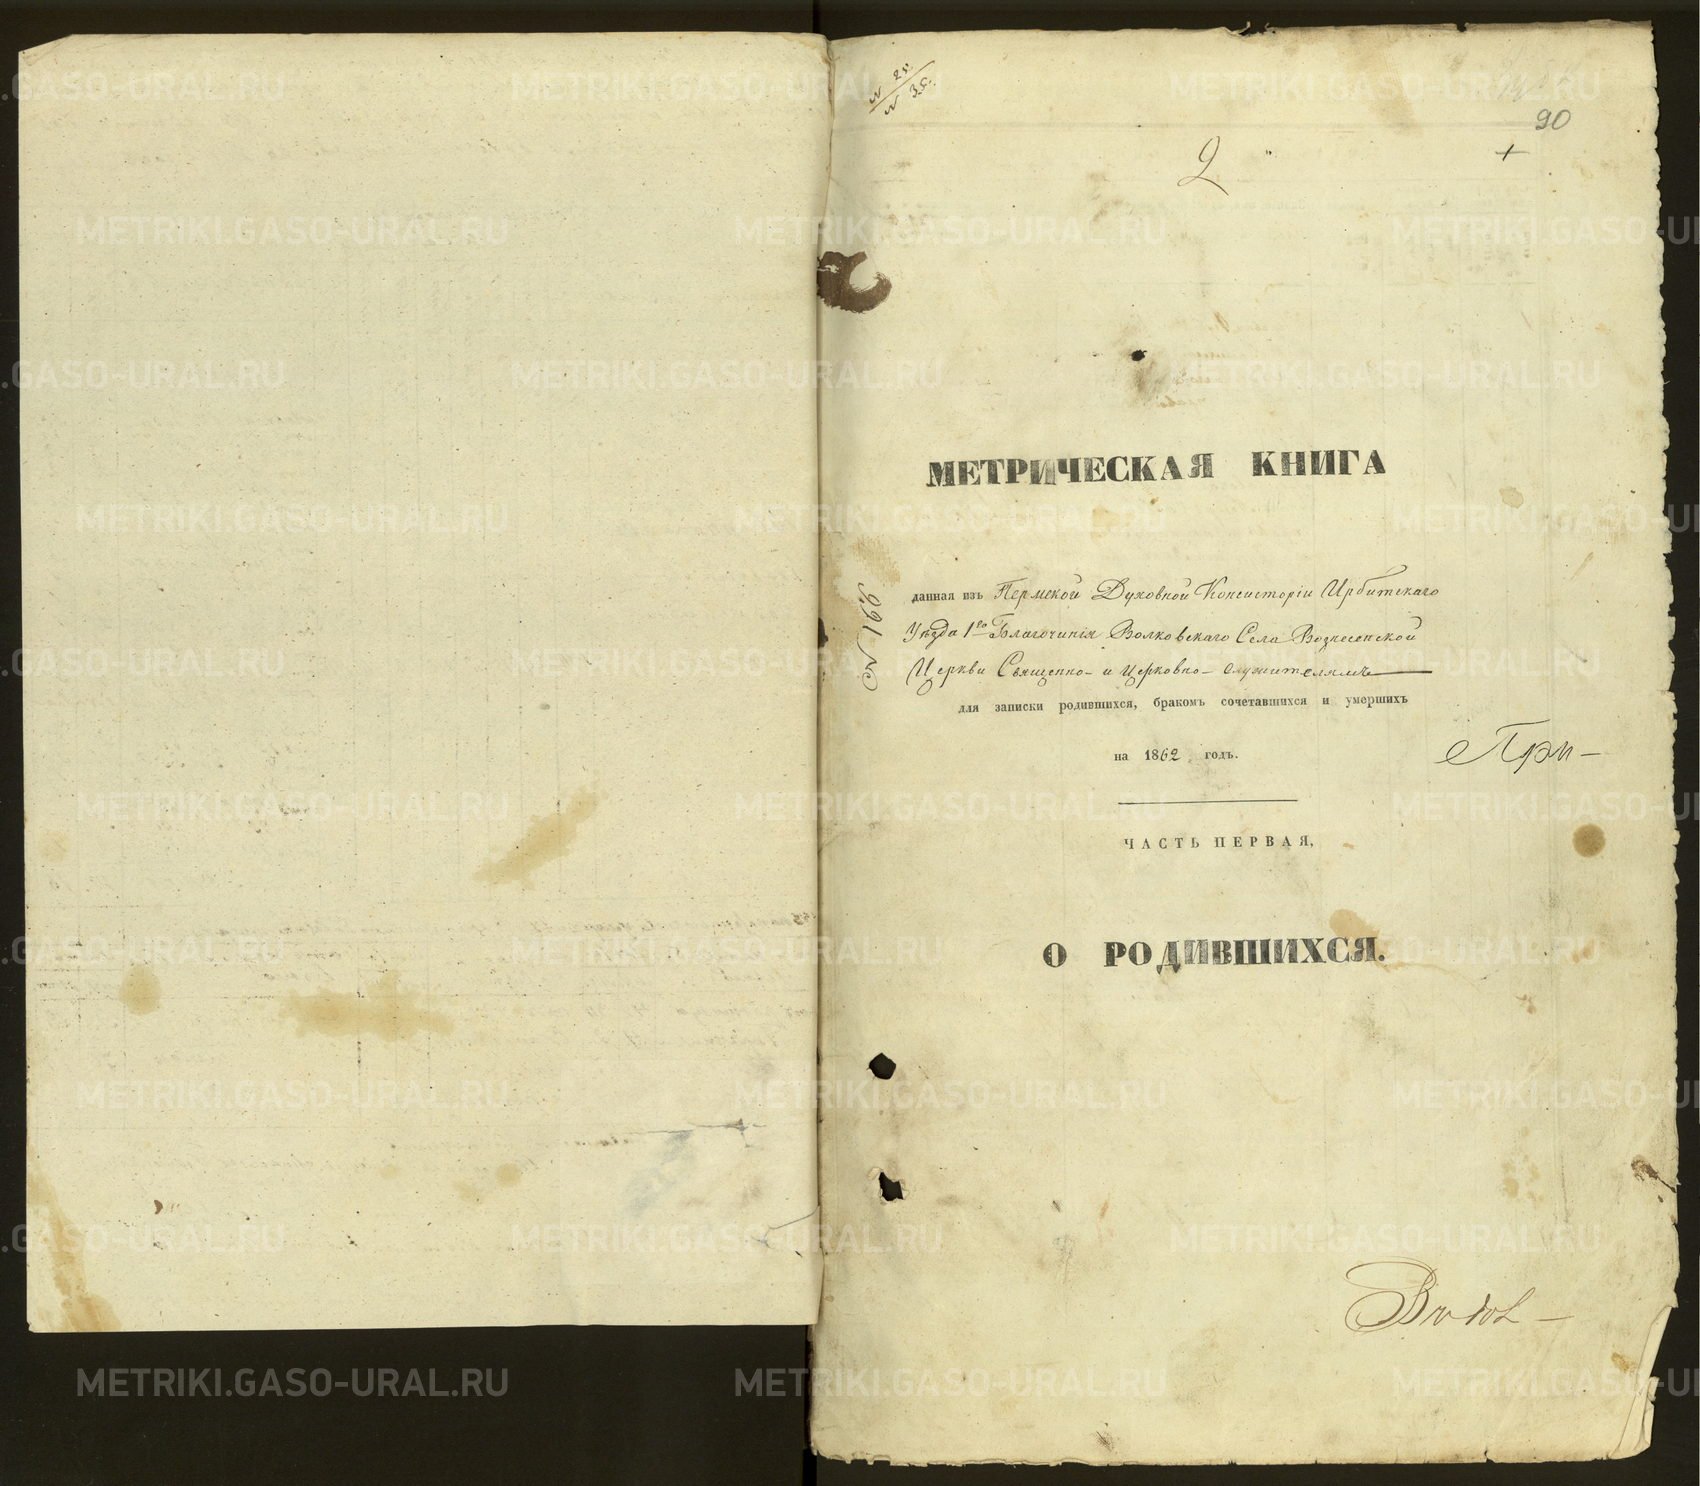 № 21.
№ 35.
90
2
МЕТРИЧЕСКАЯ КНИГА
данная изъ Пермской Духовной Консисторіи Ирбитскаго
Уѣзда 1го Благочинія Волковскаго Села Вознесенской
Церкви Священно- и Церковно- служителямъ
для записки родившихся, бракомъ сочетавшихся и умершихъ
на 1862 годъ.
При-
ЧАСТЬ ПЕРВАЯ,
О РОДИВШИХСЯ.
METRIKI.GASO-URAL.RU